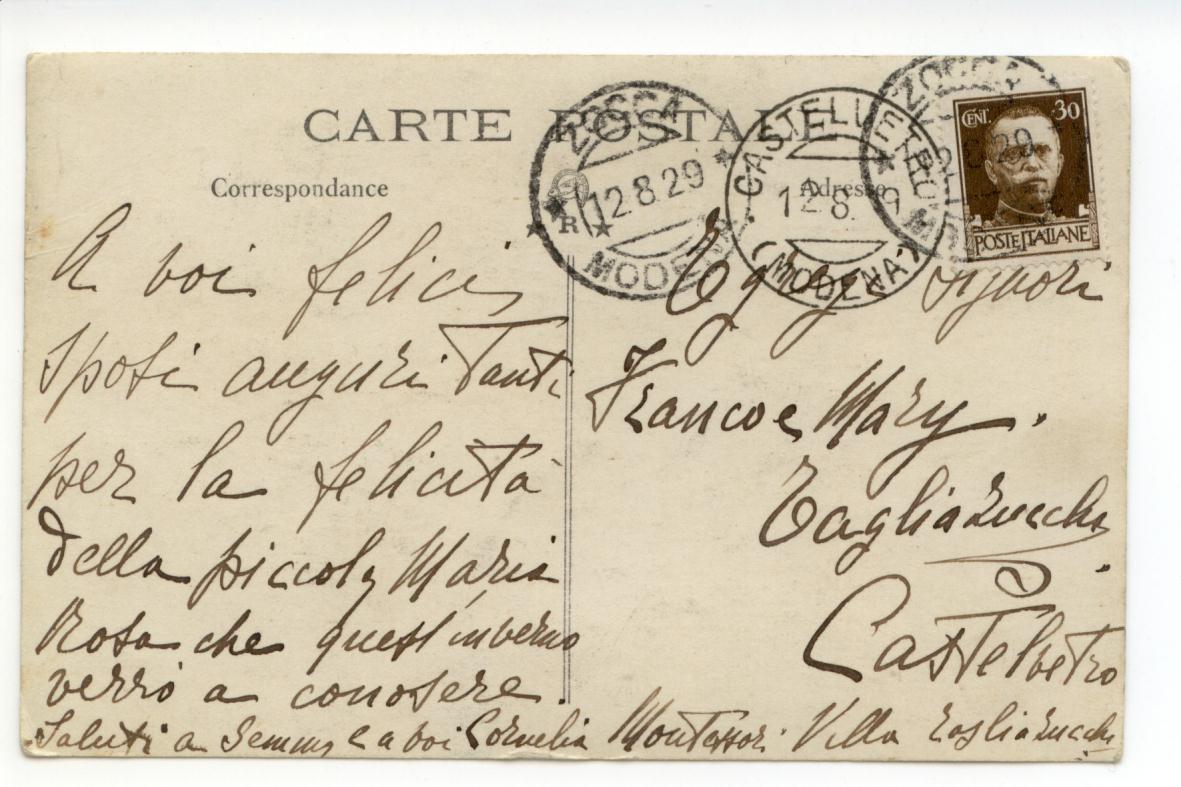 CARTE POSTALE
Correspondance
Adresse
ZOCCA
12.8.29
MODENA
R
CASTELVETRO
12.8. 9
(MODENA)
ZOCCA
2.8.29
CENT. 30
POSTE ITALIANE
A voi felici
sposi auguri Tanti
per la felicità
della piccola Maria
Rosa che quest'inverno
verrò a conoscere.
Saluti a e a voi Cornelia Montessori Villa Tagliazucchi
Egregi Signori
Franco e Mary.
Tagliazucchi
Castelvetro